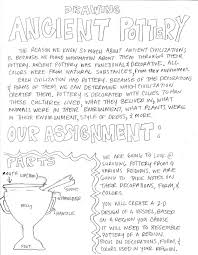 DRAWING
ANCIENT POTTERY
THE REASON WE KNOW SO MUCH ABOUT ANCIENT CIVILIZATIONS
IS BECAUSE WE FOUND INFORMATION ABOUT THEM THROUGH THEIR
POTTERY. ANCIENT POTTERY WAS FUNCTIONAL & DECORATIVE. ALL
COLORS WERE FROM NATURAL SUBSTANCES FROM their environment.
EACH CIVILIZATION HAD POTTERY. BECAUSE OF THE DECORATIONS
& FORMS OF THEM, WE CAN DETERMINE WHICH CIVILIZATION
CREATED THEM. POTTERY IS DECORATED WITH CLUES TO HOW
THESE CULTURES LIVED, WHAT THEY BELIEVED IN, WHAT
ANIMALS WERE IN THEIR ENVIRONMENT, WHAT PLANTS WERE
IN THEIR ENVIRONMENT, STYLE OF DRESS, & MORE.
OUR ASSIGNMENT:
PARTS
MOUTH
LIP
NECK
SHOULDER
HANDLE
BELLY
FOOT
WE ARE GOING TO LOOK @
SURVIVING POTTERY FROM
VARIOUS REGIONS, WE ARE
GOING TO TAKE NOTES OF
THEIR DECORATIONS, FORMS, &
COLORS.
YOU WILL CREATE A 2-D
DESIGN OF A VESSEL, BASED
ON A REGION YOU CHOSE.
IT WILL NEED TO RESEMBLE
POTTERY OF A REGION.
FOCUS ON DECORATIONS, FORMS,
& COLORS USED IN THAT